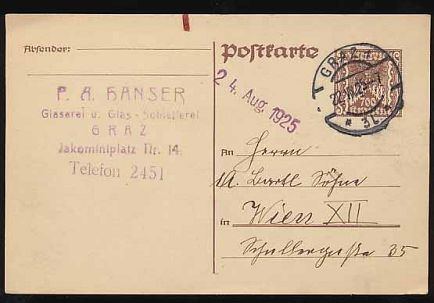 Absender:
P. A. HANSER
Glaserei u. Glas-Schleiferei
GRAZ
Jakominiplatz Nr. 14.
Telefon 2451
Postkarte
24. Aug. 1925
GRAZ
700
An Herrn
M. Bartl Söhne
in Wien XII
35